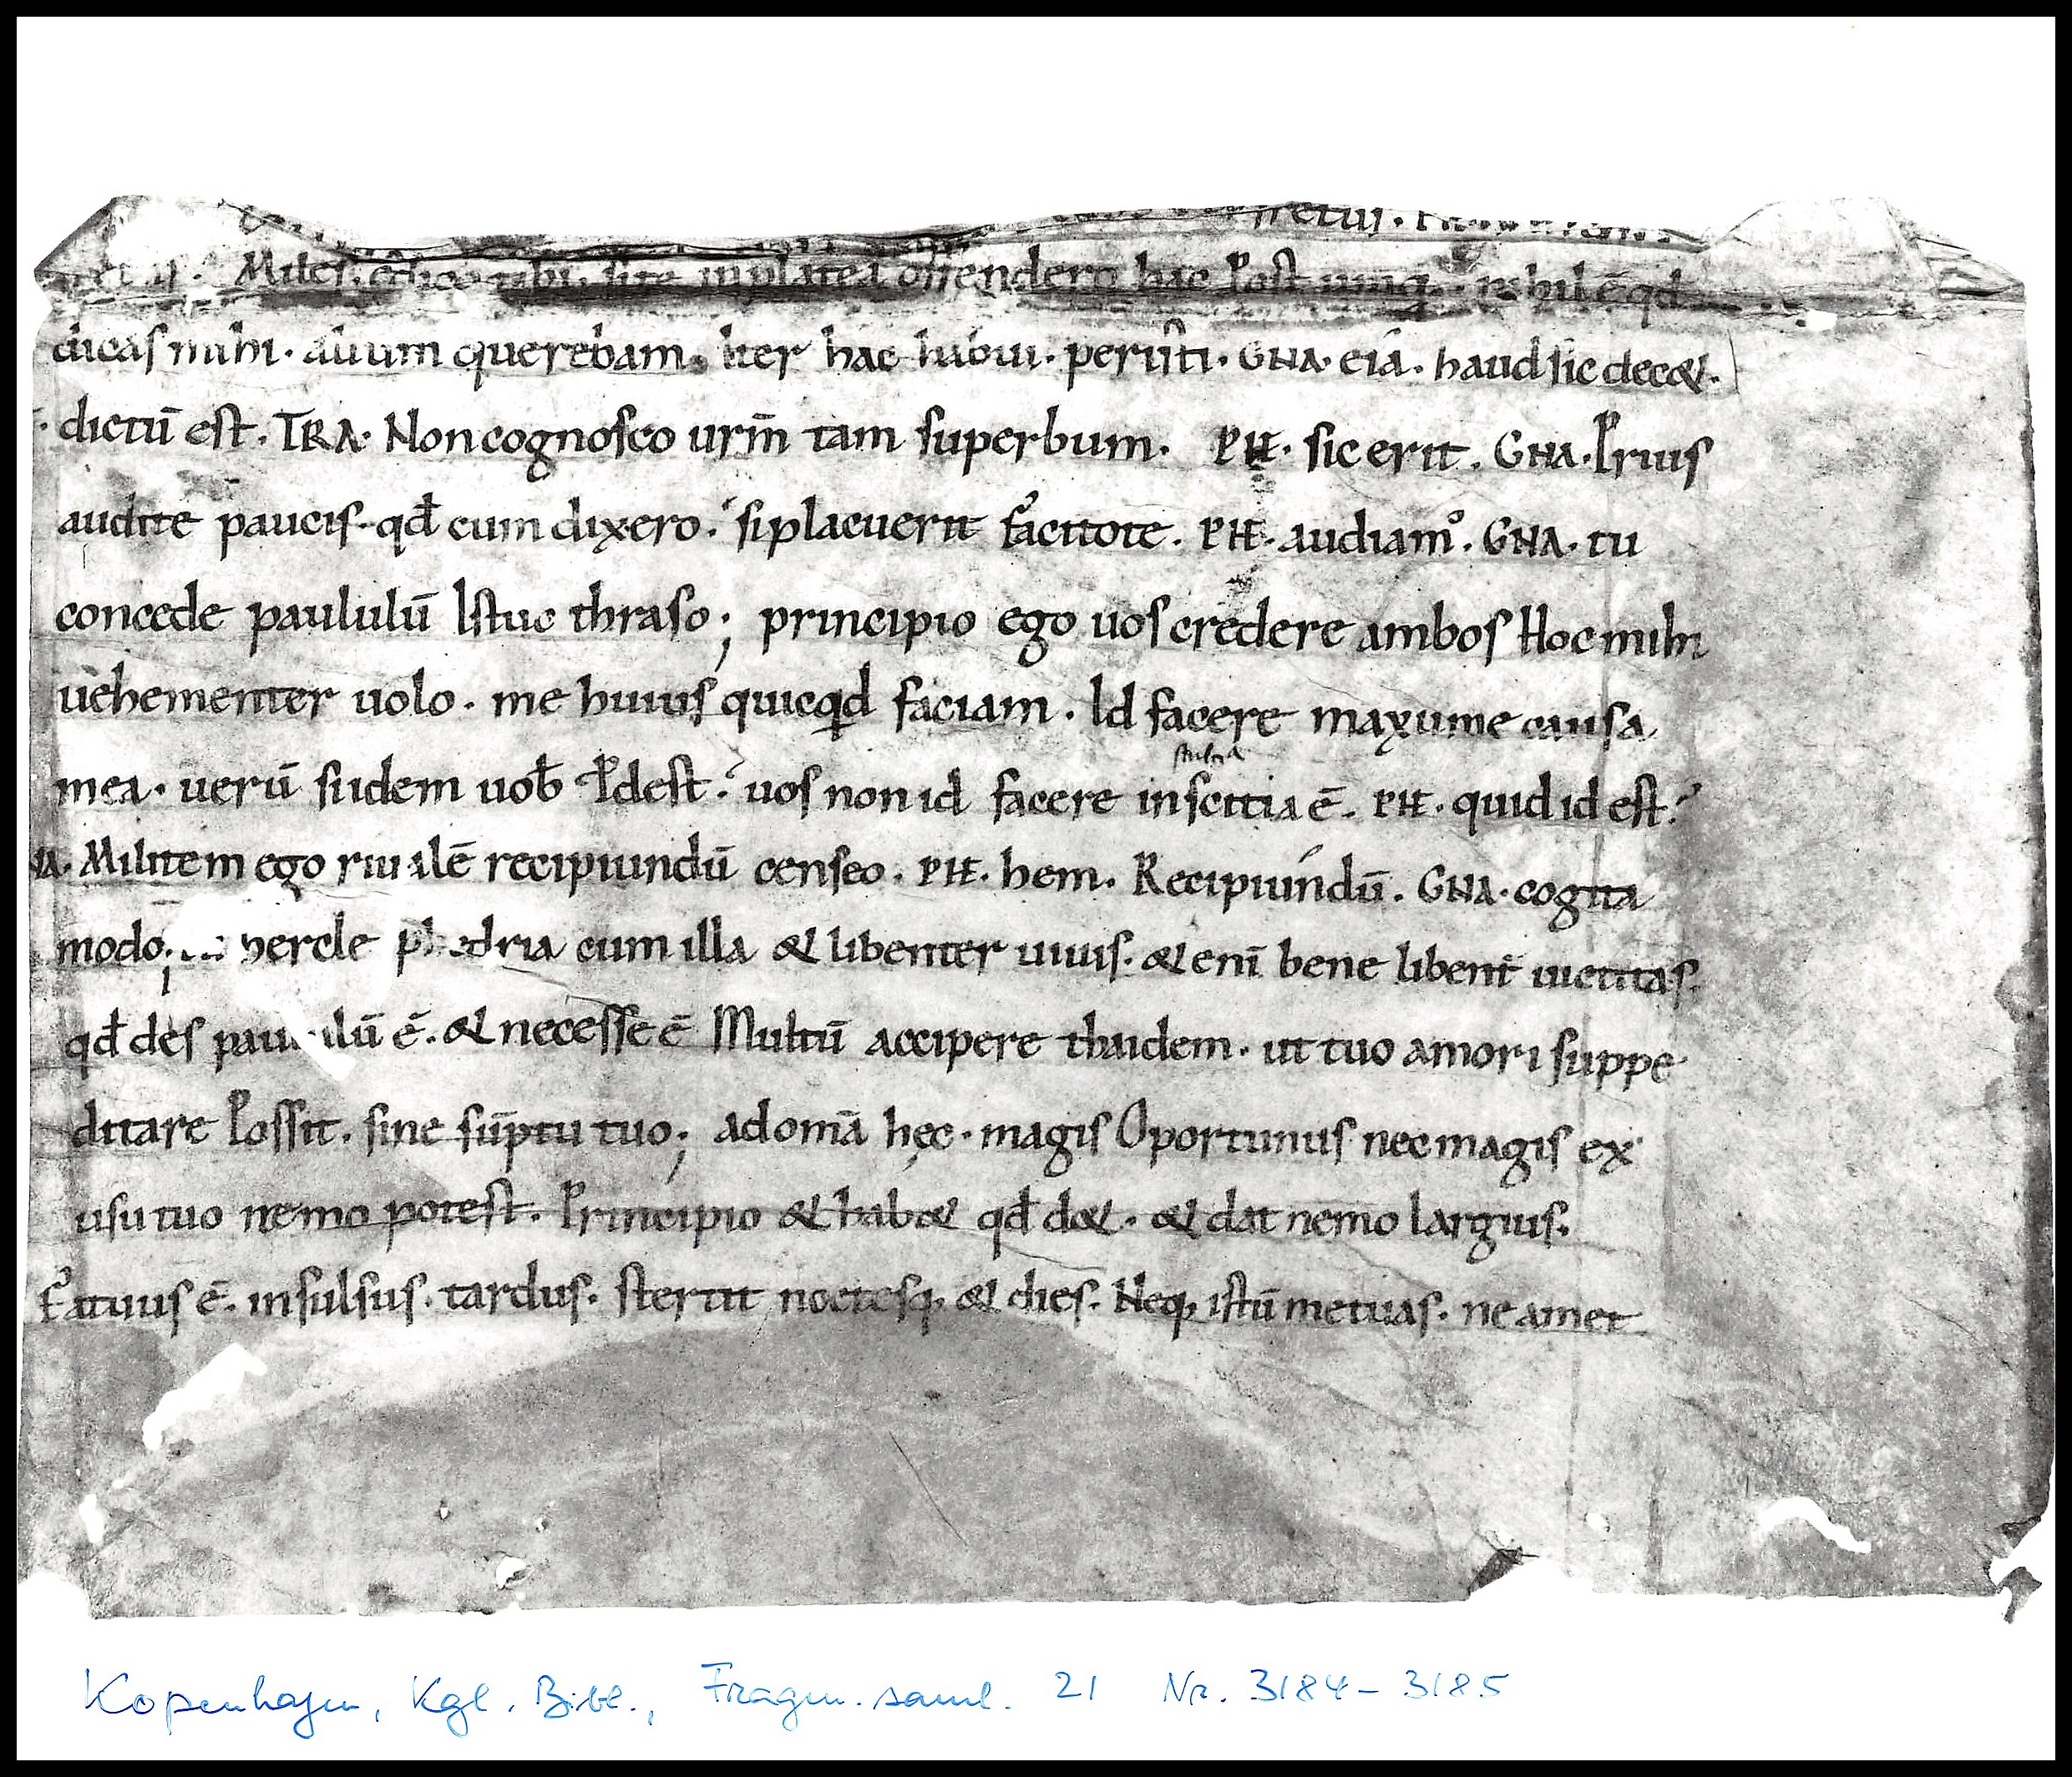 fretus.
Miles. edico tibi. site inplatea offendero hac Post umq. nihil ē qd
dicas mihi. alium querebam. Iter hac habui. periisti. GNA. eia. haud sic dec&.
dictū est. TRA. Non cognosco urm̄ tam superbum. PH. sic erit. GNA. Prius
audite paucis. qđ cum dixero. si placuerit facitote. PH. audiam⁹. GNA. tu
concede paululū Istuc thraso; principio ego uos credere ambos Hoc mihi
uehementer uolo. me huius quicqd faciam. Id facere maxume causa
stulta
mea. uerū si idem uob̄ P̄dest. uos non id facere inscitia ē. PH. quid id est?
NA. Militem ego riualē recipiundū censeo. PH. hem. Recipiundū. GNA. cogita
modo; hercle phedria cum illa & libenter uiuis. & enī bene libent̄ uictitas.
qđ des paululū ē. & necesse ē Multū accipere thaidem. ut tuo amori suppe
ditare Possit. sine sūptu tuo; ad omā hęc. magis Oportunus nec magis ex
usu tuo nemo potest. Principio & hab& qđ d&. & dat nemo largius.
Fatuus ē. insulsus. tardus. stertit noctesq; & dies. Neq; istū metuas. ne amet
Kopenhagen, Kgl. Bibl., Fragm. saml. 21 Nr. 3184-3185